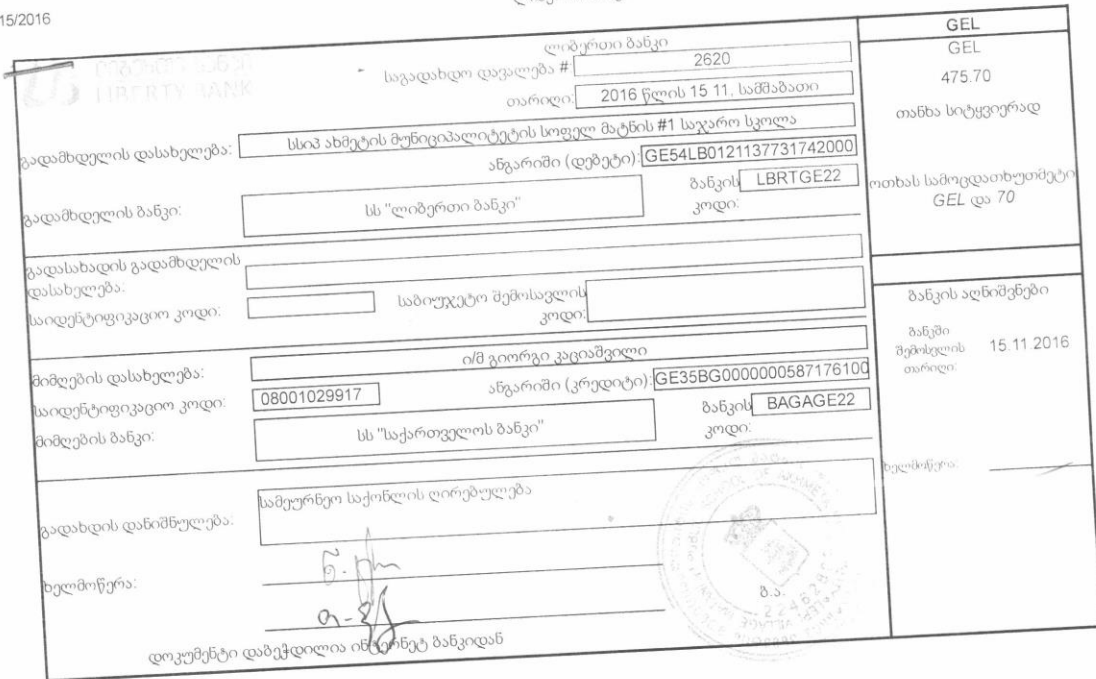 15/2016
LIBERTY BANK
ლიბერთი ბანკი
საგადახდო დავალება # 2620
თარიღი: 2016 წლის 15 11, სამშაბათი
გადამხდელის დასახელება: სსიპ ახმეტის მუნიციპალიტეტის სოფელ მატნის #1 საჯარო სკოლა
ანგარიში (დებეტი): GE54LB0121137731742000
გადამხდელის ბანკი: სს "ლიბერთი ბანკი" ბანკის კოდი: LBRTGE22
გადასახადის გადამხდელის დასახელება:
საიდენტიფიკაციო კოდი: საბიუჯეტო შემოსავლის კოდი:
მიმღების დასახელება: ი/მ გიორგი კაციაშვილი
საიდენტიფიკაციო კოდი: 08001029917 ანგარიში (კრედიტი): GE35BG0000000587176100
მიმღების ბანკი: სს "საქართველოს ბანკი" ბანკის კოდი: BAGAGE22
გადახდის დანიშნულება: სამეურნეო საქონლის ღირებულება
ხელმოწერა:
ბ.ა.
დოკუმენტი დაბეჭდილია ინტერნეტ ბანკიდან
GEL
GEL
475.70
თანხა სიტყვიერად
ოთხას სამოცდათხუთმეტი
GEL და 70
ბანკის აღნიშვნები
ბანკში
შემოსვლის 15.11.2016
თარიღი:
ხელმოწერა: